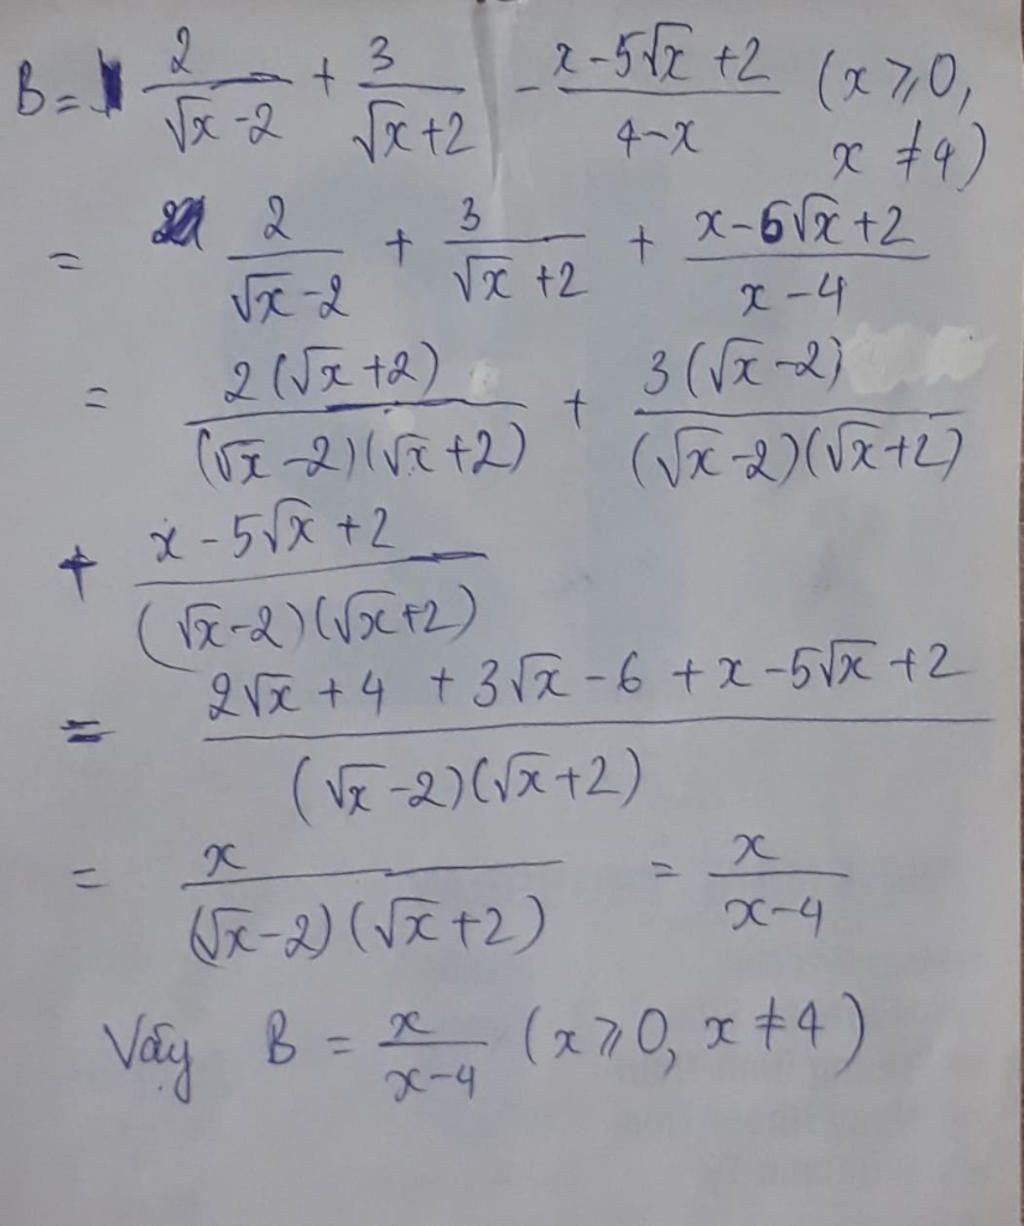 B = 2/(√x - 2) + 3/(√x + 2) - (x - 5√x + 2)/(4 - x) (x ⩾ 0,
x ≠ 4)
= 2/(√x - 2) + 3/(√x + 2) + (x - 6√x + 2)/(x - 4)
= 2(√x + 2)/((√x - 2)(√x + 2)) + 3(√x - 2)/((√x - 2)(√x + 2))
+ (x - 5√x + 2)/((√x - 2)(√x + 2))
= (2√x + 4 + 3√x - 6 + x - 5√x + 2)/((√x - 2)(√x + 2))
= x/((√x - 2)(√x + 2)) = x/(x - 4)
Vậy B = x/(x - 4) (x ⩾ 0, x ≠ 4)